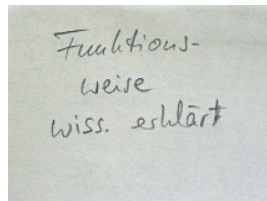 Funktions-
weise
wiss. erklärt